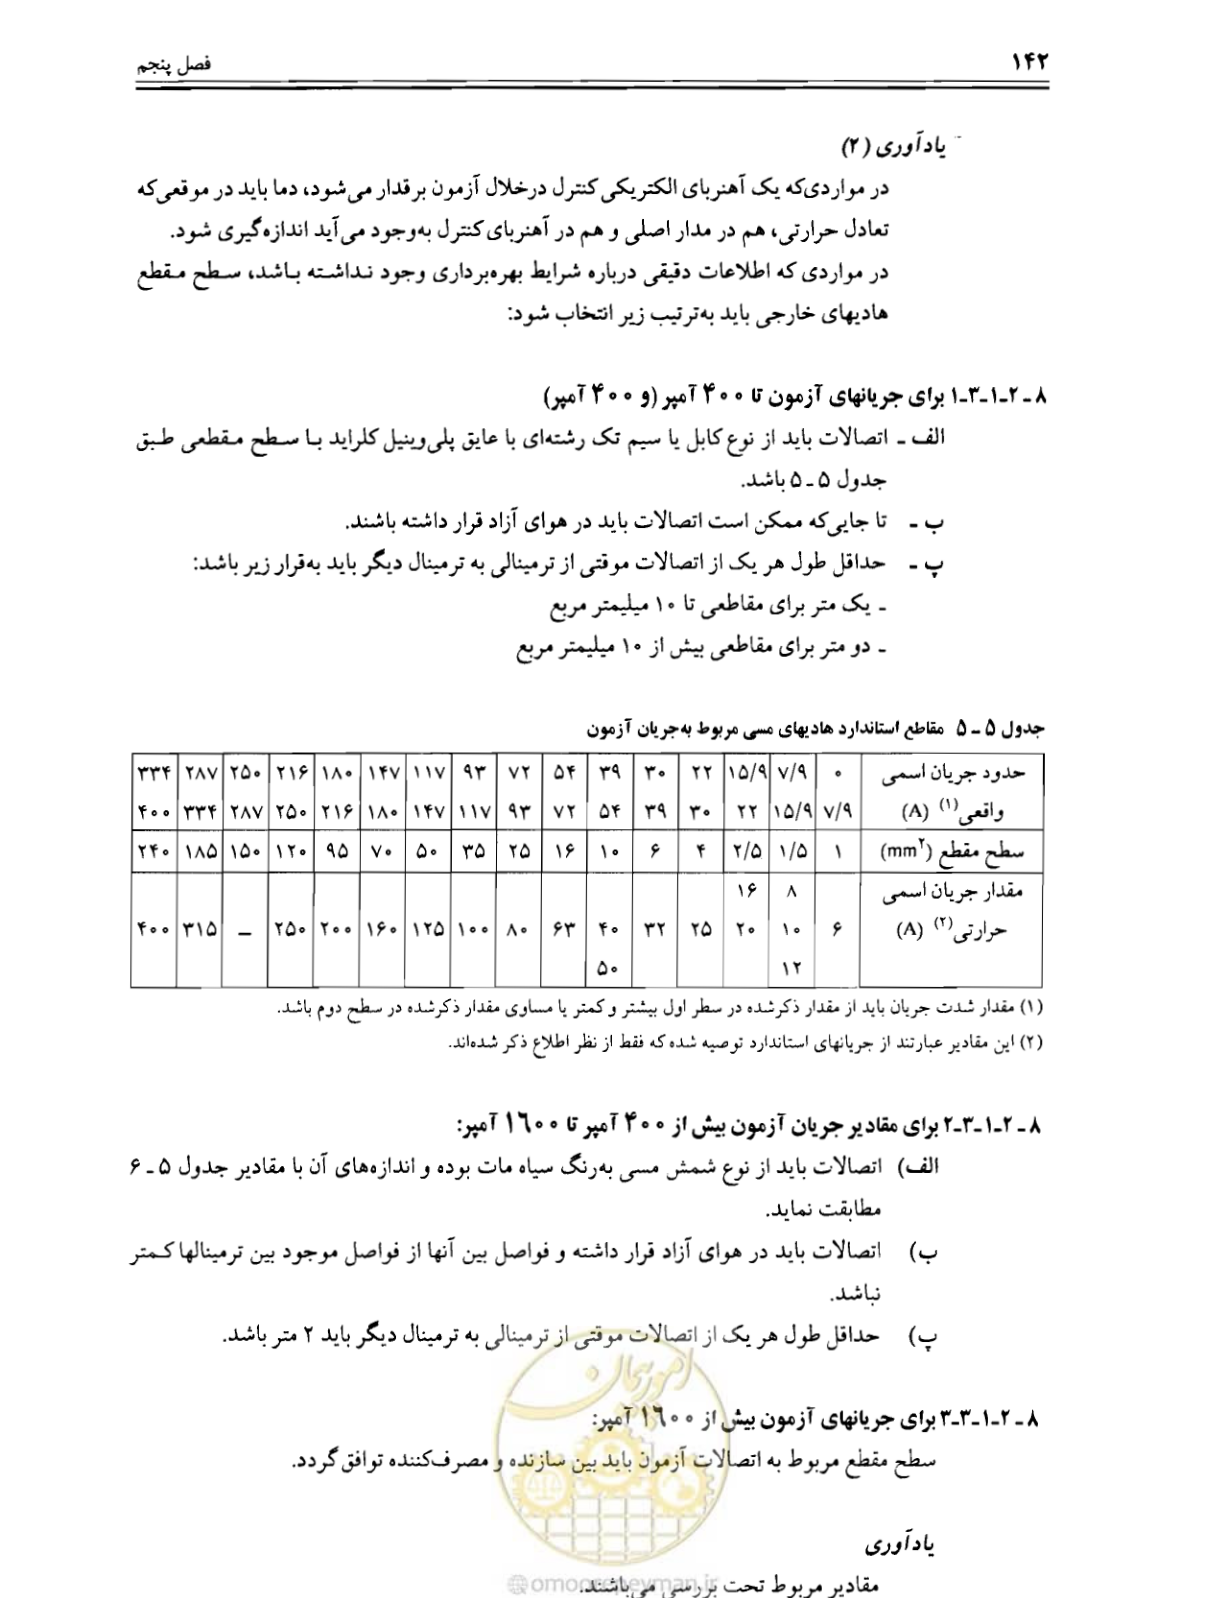 ۱۴۲
فصل پنجم
یادآوری (۲)
در مواردی‌که یک آهنربای الکتریکی کنترل درخلال آزمون برقدار می‌شود، دما باید در موقعی‌که
تعادل حرارتی، هم در مدار اصلی و هم در آهنربای کنترل به‌وجود می‌آید اندازه‌گیری شود.
در مواردی که اطلاعات دقیقی درباره شرایط بهره‌برداری وجود نداشته باشد، سطح مقطع
هادیهای خارجی باید به‌ترتیب زیر انتخاب شود:
۸ـ۲ـ۱ـ۳ـ۱ برای جریانهای آزمون تا ۴۰۰ آمپر (و ۴۰۰ آمپر)
الف ـ اتصالات باید از نوع کابل یا سیم تک رشته‌ای با عایق پلی‌وینیل کلراید با سطح مقطعی طبق
جدول ۵ـ۵ باشد.
ب ـ تا جایی‌که ممکن است اتصالات باید در هوای آزاد قرار داشته باشند.
پ ـ حداقل طول هر یک از اتصالات موقتی از ترمینالی به ترمینال دیگر باید به‌قرار زیر باشد:
ـ یک متر برای مقاطعی تا ۱۰ میلیمتر مربع
ـ دو متر برای مقاطعی بیش از ۱۰ میلیمتر مربع
جدول ۵ـ۵ مقاطع استاندارد هادیهای مسی مربوط به‌جریان آزمون
حدود جریان اسمی ۰ ۷/۹ ۱۵/۹ ۲۲ ۳۰ ۳۹ ۵۴ ۷۲ ۹۳ ۱۱۷ ۱۴۷ ۱۸۰ ۲۱۶ ۲۵۰ ۲۸۷ ۳۳۴
واقعی(۱) (A) ۷/۹ ۱۵/۹ ۲۲ ۳۰ ۳۹ ۵۴ ۷۲ ۹۳ ۱۱۷ ۱۴۷ ۱۸۰ ۲۱۶ ۲۵۰ ۲۸۷ ۳۳۴ ۴۰۰
سطح مقطع (mm۲) ۱ ۱/۵ ۲/۵ ۴ ۶ ۱۰ ۱۶ ۲۵ ۳۵ ۵۰ ۷۰ ۹۵ ۱۲۰ ۱۵۰ ۱۸۵ ۲۴۰
مقدار جریان اسمی ۸ ۱۶
حرارتی(۲) (A) ۶ ۱۰ ۲۰ ۲۵ ۳۲ ۴۰ ۶۳ ۸۰ ۱۰۰ ۱۲۵ ۱۶۰ ۲۰۰ ۲۵۰ ـ ۳۱۵ ۴۰۰
۱۲ ۵۰
(۱) مقدار شدت جریان باید از مقدار ذکرشده در سطر اول بیشتر و کمتر یا مساوی مقدار ذکرشده در سطح دوم باشد.
(۲) این مقادیر عبارتند از جریانهای استاندارد توصیه شده که فقط از نظر اطلاع ذکر شده‌اند.
۸ـ۲ـ۱ـ۳ـ۲ برای مقادیر جریان آزمون بیش از ۴۰۰ آمپر تا ۱۶۰۰ آمپر:
الف) اتصالات باید از نوع شمش مسی به‌رنگ سیاه مات بوده و اندازه‌های آن با مقادیر جدول ۵ـ۶
مطابقت نماید.
ب) اتصالات باید در هوای آزاد قرار داشته و فواصل بین آنها از فواصل موجود بین ترمینالها کمتر
نباشد.
پ) حداقل طول هر یک از اتصالات موقتی از ترمینالی به ترمینال دیگر باید ۲ متر باشد.
امور پیمان
۸ـ۲ـ۱ـ۳ـ۳ برای جریانهای آزمون بیش از ۱۶۰۰ آمپر:
سطح مقطع مربوط به اتصالات آزمون باید بین سازنده و مصرف‌کننده توافق گردد.
یادآوری
مقادیر مربوط تحت بررسی می‌باشند.
omoorepeyman.ir